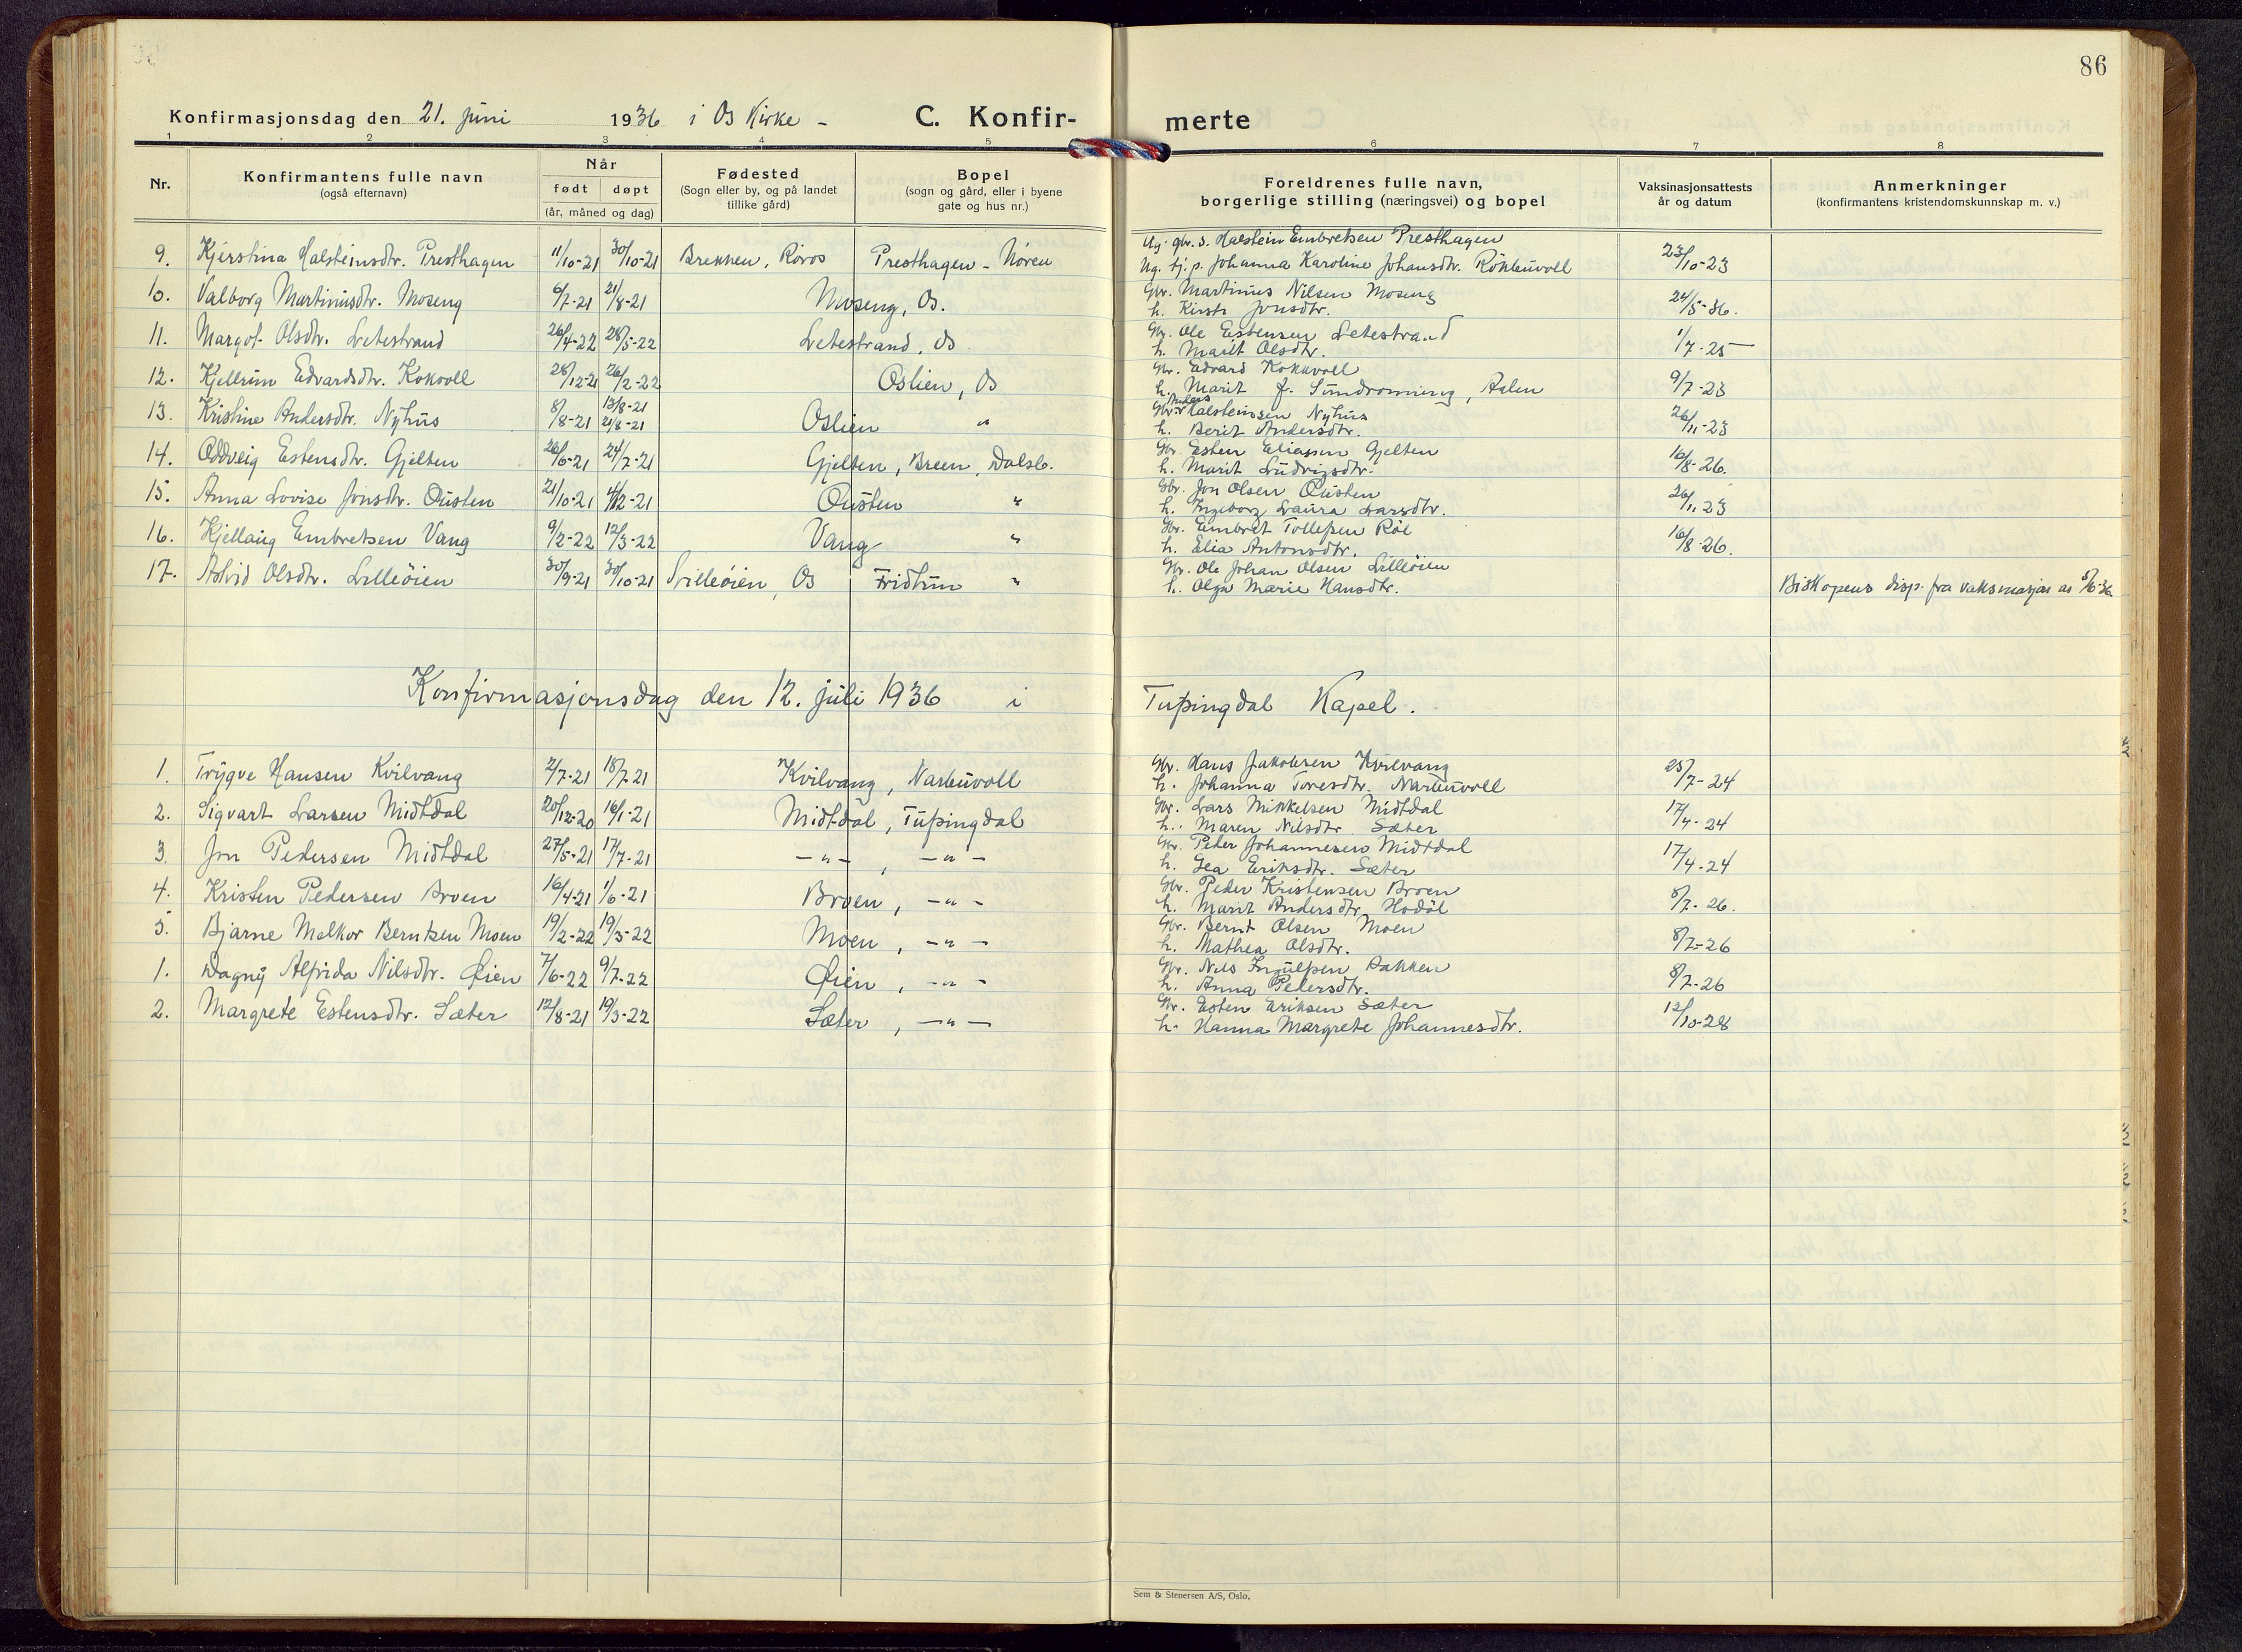 86
Konfirmasjonsdag den 21. juni 1936 i Os Kirke -
C. Konfir-
merte
1 2 3 4 5 6 7 8
Nr.
Konfirmantens fulle navn
(også efternavn)
Når
født døpt
(år, måned og dag)
Fødested
(Sogn eller by, og på landet
tillike gård)
Bopel
(sogn og gård, eller i byene
gate og hus nr.)
Foreldrenes fulle navn,
borgerlige stilling (næringsvei) og bopel
Vaksinasjonsattests
år og datum
Anmerkninger
(konfirmantens kristendomskunnskap m. v.)
9. Kjerstina Halsteinsdtr. Presthagen 11/10-21 30/10-21 Brekken, Røros Presthagen - Nøren
Ug. gbr. s. Halstein Embretsen Presthagen
Ug. tj. p. Johanna Karoline Johansdtr. 23/10-23
10. Valborg Martinusdtr. Moseng 6/7-21 21/8-21 Moseng, Os.
Gbr. Martinus Nilsen Moseng
h. Kirsti Jonsdtr. 24/5-36.
11. Margot Olsdtr. Letestrand 26/4-22 28/5-22 Letestrand, Os
Gbr. Ole Estensen Letestrand
h. Marit Olsdtr. 1/7-25
12. Kjellrun Edvardsdtr. Kokvoll 28/12-21 26/2-22 Oslien, Os
Gbr. Edvard Kokkvoll
h. Marit f. Aalen 9/7-23
13. Kristine Andersdtr. Nyhus 8/8-21 13/8-21 21/8-21 Oslien "
Gbr. Anders Halsteinsen Nyhus
h. Berit Andersdtr. 26/11-23
14. Oddveig Estensdtr. Gjelten 26/6-21 24/7-21 Gjelten, Breen, Dalsb.
Gbr. Esten Eliassen Gjelten
h. Marit Ludvigsdtr. 16/8-26.
15. Anna Lovise Jonsdtr. Øusten 21/10-21 4/12-21 Øusten "
Gbr. Jon Olsen Øusten
h. Ingeborg Laura Larsdtr. 26/11 23
16. Kjellaug Embretsen Vang 9/2-22 12/3-22 Vang "
Gbr. Embret Tollefsen Røe
h. Elia Antonsdtr. 16/8-26.
17. Astrid Olsdtr. Lilleøien 30/9-21 30/10-21 Lilleøien, Os Fridtun "
Gbr. Ole Johan Olsen Lilleøien
h. Olga Marie Hansdtr. Biskopens disp. fra vaksinasjon
Konfirmasjonsdag den 12. juli 1936 i Tufsingdal Kapel.
1. Trygve Hansen Kvilvang 2/7-21 18/7-21 Kvilvang, Narbuvoll
Gbr. Hans Jakobsen Kvilvang
h. Johanna Toresdtr. Narbuvoll 25/7-24
2. Sigvart Larsen Midtdal 20/12-20 16/1-21 Midtdal, Tufsingdal
Gbr. Lars Mikkelsen Midtdal
h. Maren Nilsdtr. Sæter 17/4-24
3. Jon Pedersen Midtdal 27/5-21 17/7-21 -"- , -"-
Gbr. Peder Johannesen Midtdal
h. Gea Eriksdtr. Sæter 17/4-24
4. Kristen Pedersen Broen 16/4-21 1/6-21 Broen, -"-
Gbr. Peder Kristensen Broen
h. Marit Andersdtr. Hodøl 8/7-26.
5. Bjarne Melkor Berntsen Moen 19/2-22 19/3-22 Moen, -"-
Gbr. Bernt Olsen Moen
h. Mathea Olsdtr. 8/7-26
1. Dagny Alfrida Nilsdtr. Øien 7/6-22 9/7-22 Øien, -"-
Gbr. Nils Bakken
h. Anna Pedersdtr. 8/7-26
2. Margrete Estensdtr. Sæter 12/8-21 19/3-22 Sæter, -"-
Gbr. Esten Eriksen Sæter
h. Hanna Margrete Johannesdtr. 12/10-28
Sem & Stenersen A/S, Oslo.